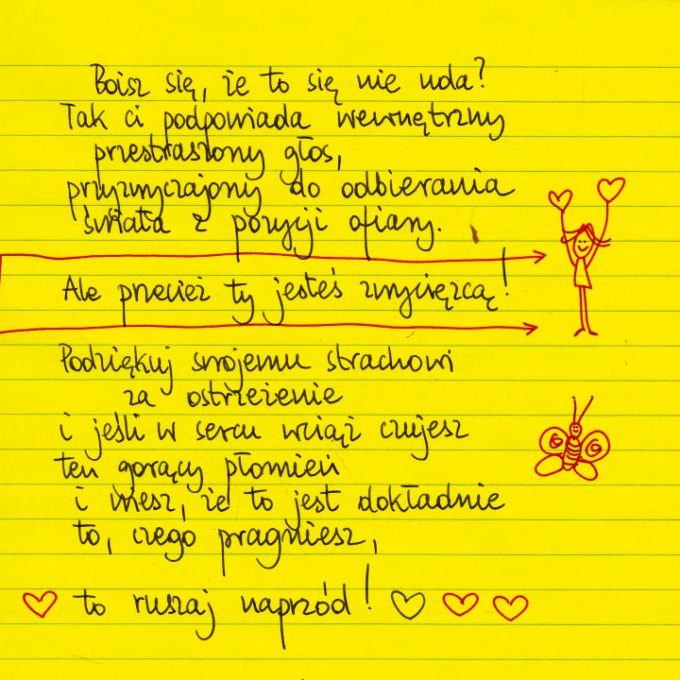 Boisz się, że to się nie uda?
Tak ci podpowiada wewnętrzny
przestraszony głos,
przyzwyczajony do odbierania
świata z pozycji ofiary.
Ale przecież ty jesteś zwycięzcą!
Podziękuj swojemu strachowi
za ostrzeżenie
i jeśli w sercu wciąż czujesz
ten gorący płomień
i wiesz, że to jest dokładnie
to, czego pragniesz,
to ruszaj naprzód!